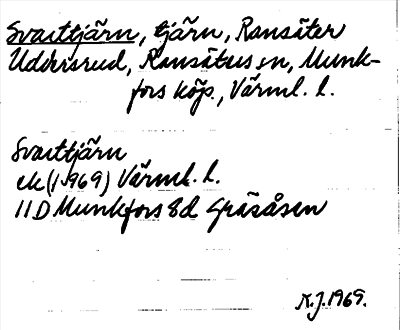 Svarttjärn, tjärn, Ransäter
Uddersrud, Ransäters sn, Munk-
fors köp., Värml. l.
Svarttjärn
ek (1969) Värml. l.
11D Munkfors 8d Gräsåsen
K.J. 1969.